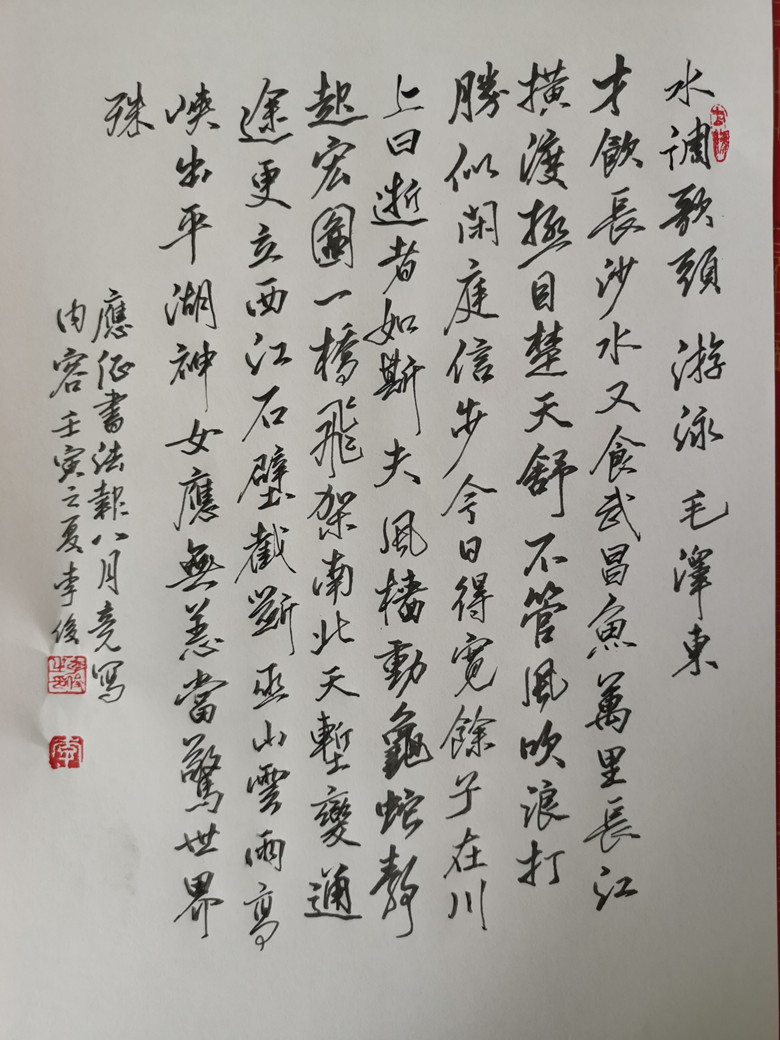 水调歌頭 游泳 毛澤東
才飲長沙水又食武昌魚萬里長江
橫渡極目楚天舒不管風吹浪打
勝似閑庭信步今日得寬餘子在川
上曰逝者如斯夫風檣動龜蛇靜
起宏圖一橋飛架南北天塹變通
途更立西江石壁截斷巫山雲雨高
峽出平湖神女應無恙當驚世界
殊
應征書法報八月竞寫
内容壬寅之夏李俊
李